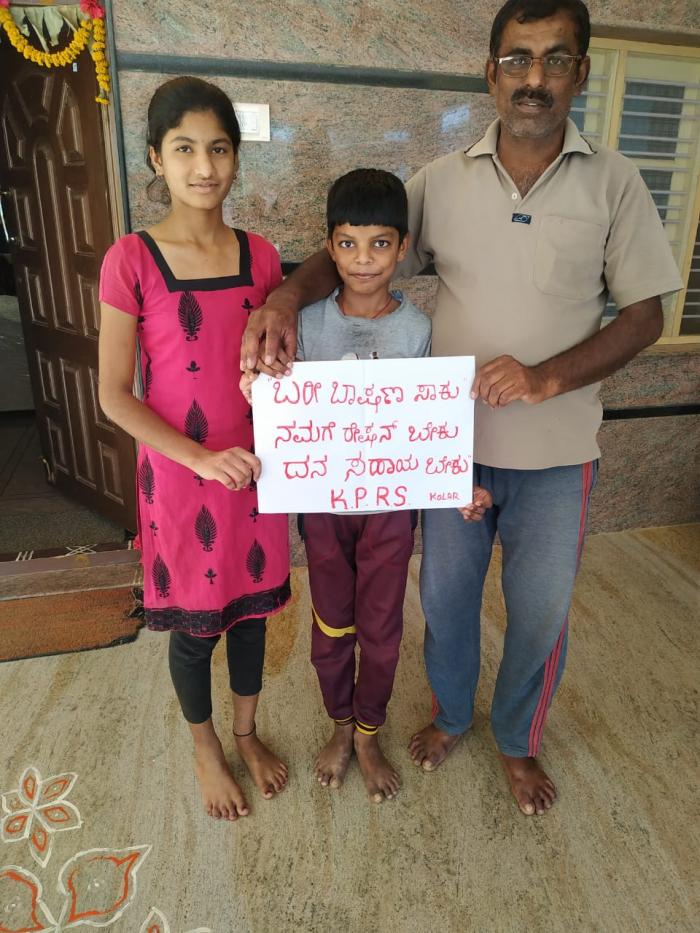 "ಬರೀ ಬಾಷಣ ಸಾಕು
ನಮಗೆ ರೇಷನ್ ಬೇಕು
ದನ ಸಹಾಯ ಬೇಕು"
K.P.RS. KOLAR